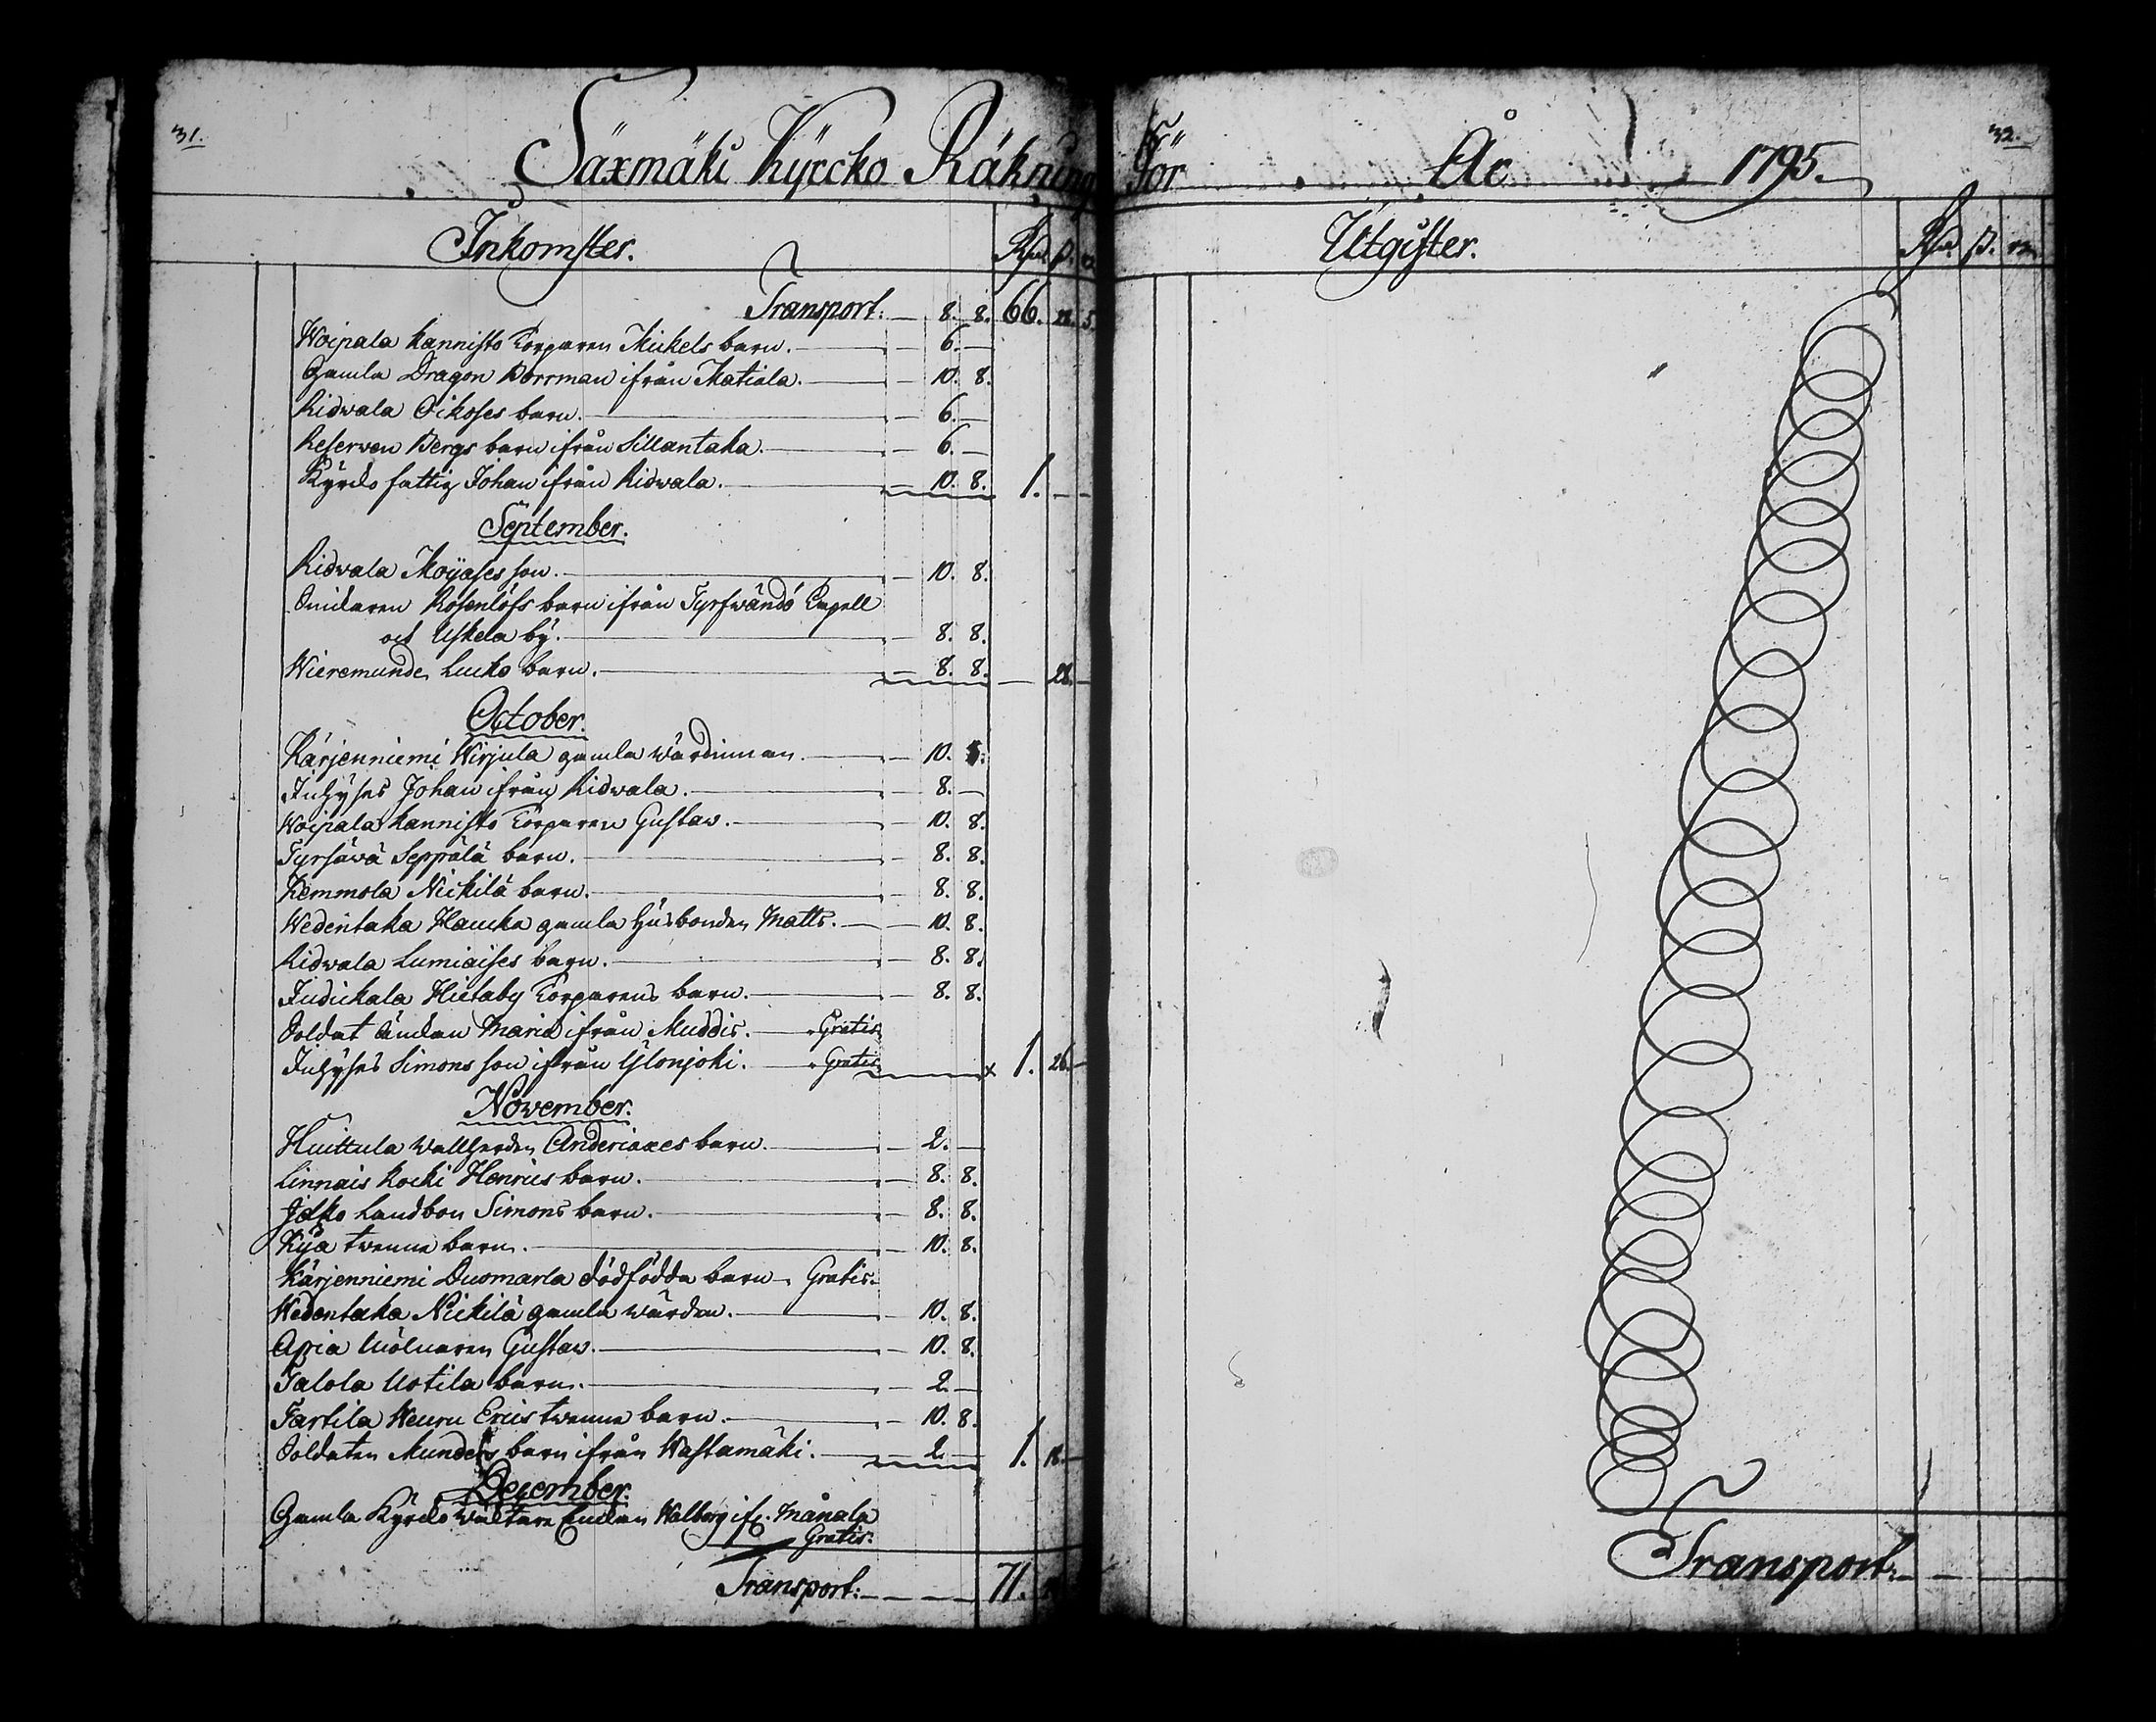 31.
Säxmäki Kyrcko Räkning
Inkomster. Rsd. ß. r
Transport. 8. 8. 66. 22. 5.
Woipala Kannisto Torparen Mickels barn. 6.
Gamla Dragon Borrman ifrån Matiala. 10. 8.
Ridwala Oikoses barn. 6.
Reserven Bergs barn ifrån Sillantaka. 6.
Kyrcko fattig Johan ifrån Ridwala. 10. 8. 1.
September.
Ridwala Moijases son. 10. 8.
Rosenlöfs barn ifrån Tyrfwändö Capell
och Uskela by. 8. 8.
Wieremunde Lucko barn. 8. 8. 28.
October.
Kärjenniemi Wirjula gamla wärdinnan. 10. 8.
Inhyses Johan ifrån Ridwala. 8.
Woipala Kannisto Torparen Gustav. 10. 8.
Tyrsävä Seppälä barn. 8. 8.
Kemmola Nickilä barn. 8. 8.
Wedentaka Haucka gamla husbonden Matts. 10. 8.
Ridwala Lumiaises barn. 8. 8.
Judickala Hietaby Torparens barn. 8. 8.
Soldat Änckan Maria ifrån Muddis. Gratis.
Inhyses Simons son ifrån Ylonjoki. Gratis. x 1. 26.
November.
Huittula wallherden Anderiaxes barn. 2.
Linnais Kocki Henrics barn. 8. 8.
Jdlko Landbon Simons barn. 8. 8.
Kyä twenne barn. 10. 8.
Kärjenniemi Duomarla dödfödda barn. Gratis.
Wedentaka Nickilä gamla wärden. 10. 8.
Apia Mölnaren Gustav. 10. 8.
Talola Uotila barn. 2.
Tartila Weuru Erics twenne barn. 10. 8.
Soldaten Munders barn ifrån Wastamäki. 2. 1. 18.
December.
Gamla Kyrcko wäktare Enckan Walborg ifr. Månala
Gratis.
Transport: 71.
32.
För År 1795.
Utgifter. Rsd. ß. rr
Transport.